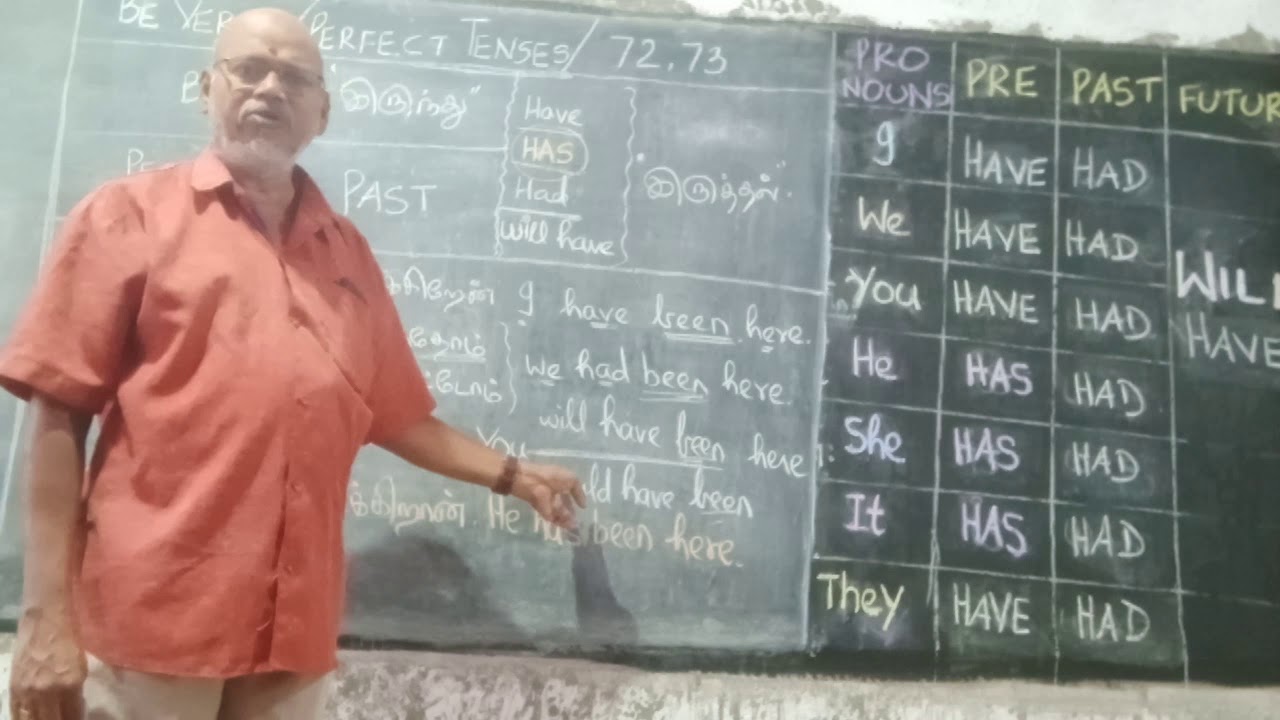 BE VER PERFECT TENSES/ 72,73
"இருந்து"
Have
HAS
Had
will have
PAST
"இருத்தல்".
I have been here.
we had been here.
You will have been here
ld have been
க்கிறான். He has been here.
PRO NOUNS PRE PAST FUTUR
I HAVE HAD
We HAVE HAD
You HAVE HAD
He HAS HAD
She HAS HAD
It HAS HAD
They HAVE HAD
WILL
HAVE